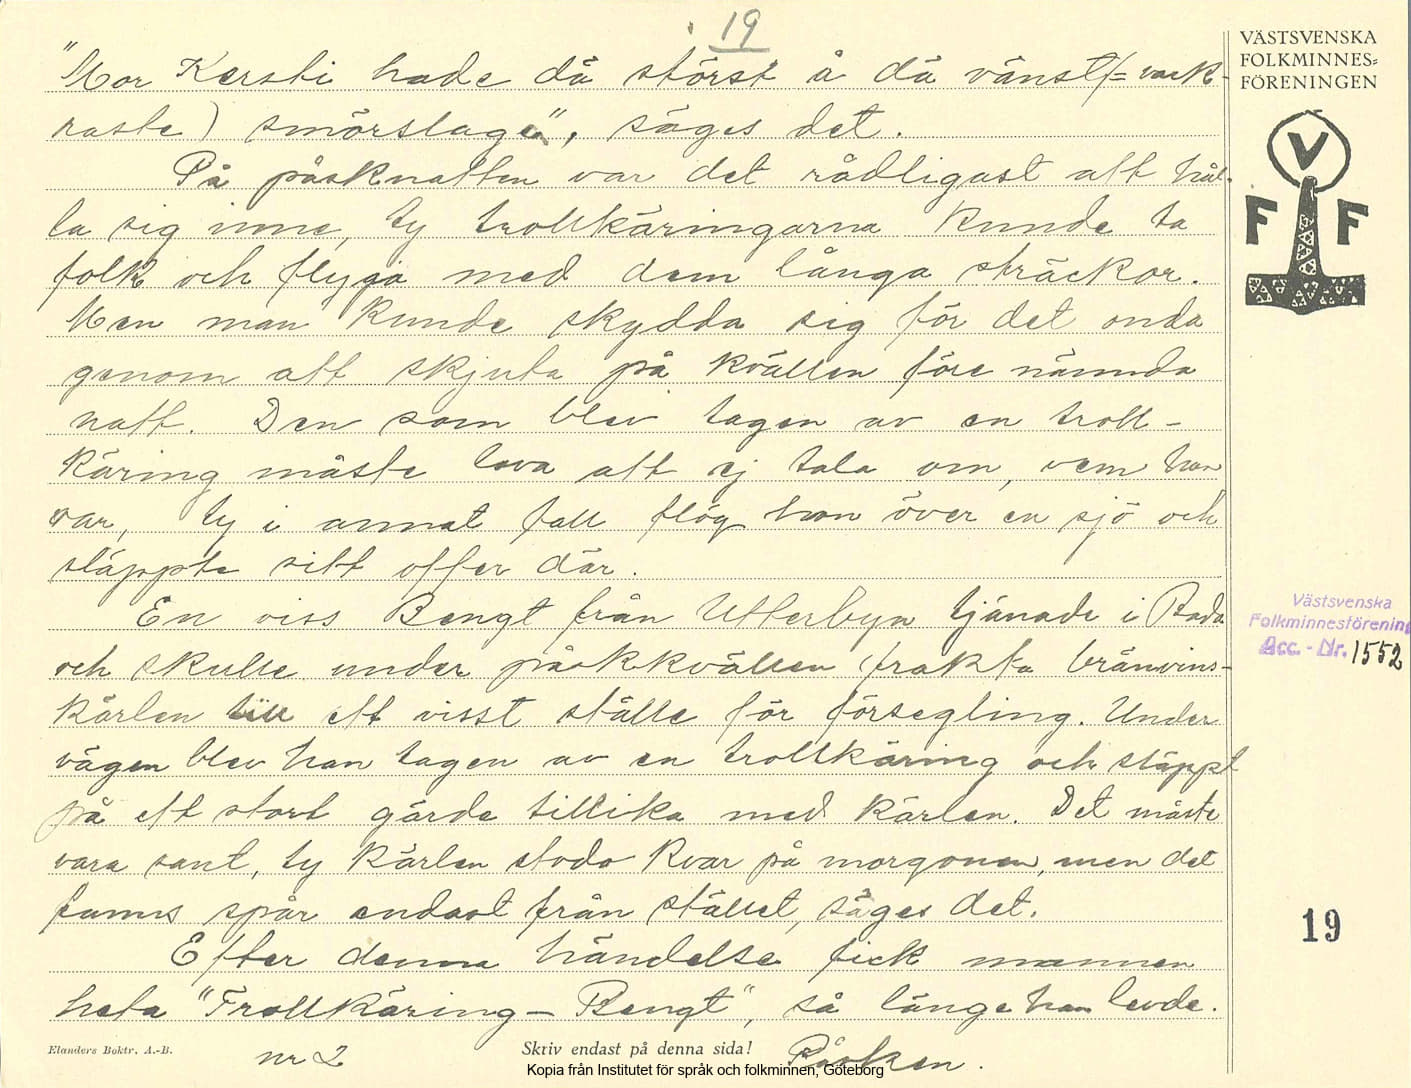 19
"Mor Kersti hade då störst å då vänst (= vack-
raste) smörslage", säges det.
På påsknatten var det rådligast att hål-
la sig inne, ty trollkäringarna kunde ta
folk och flyga med dem långa sträckor.
Men man kunde skydda sig för det onda
genom att skjuta på kvällen före nämnda
natt. Den som blev tagen av en troll-
käring måste lova att ej tala om, vem hon
var, ty i annat fall flög hon över en sjö och
släppte sitt offer där.
En viss Bengt från Utterbyn tjänade i Bada
och skulle under påskkvällen frakta brännvins-
kärlen till ett visst ställe för försegling. Under
vägen blev han tagen av en trollkäring och släppt
på ett stort gärde tillika med kärlen. Det måste
vara sant, ty kärlen stodo kvar på morgonen, men det
fanns spår endast från stället, säges det.
Efter denna händelse fick mannen
heta "Trollkäring-Bengt", så länge han levde.
Elanders Boktr. A.-B.
nr 2
Skriv endast på denna sida!
Påsken.
Kopia från Institutet för språk och folkminnen, Göteborg
VÄSTSVENSKA
FOLKMINNES=
FÖRENINGEN
V
F F
Västsvenska
Folkminnesförening
Acc. - Nr. 1552
19